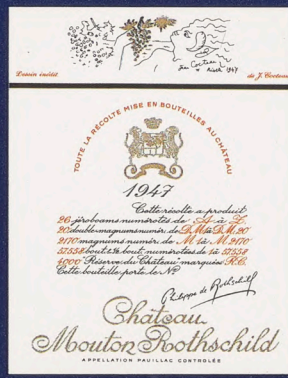 Jean Cocteau
Dessin inédit
de J. Cocteau
TOUTE LA RÉCOLTE MISE EN BOUTEILLES AU CHÂTEAU
1947
Cette récolte a produit
26 jéroboams numérotés de A à Z
20 double-magnums numér. de D.M. à D.M. 20
2170 magnums numér. de M1 à M 2170
Cette bouteille porte le Nº
4000 "Réserve du Château" marquées R.C.
Philippe de Rothschild
Château
Mouton Rothschild
APPELLATION PAUILLAC CONTROLÉE